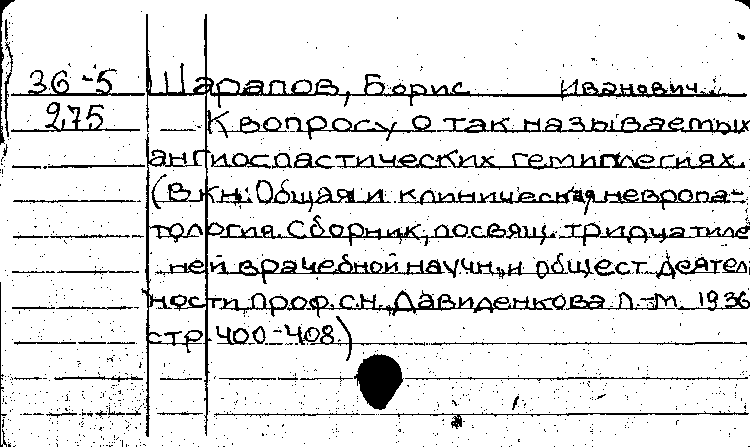 36-5 Шарапов, Борис Иванович.
275 К вопросу о так называемых
ангиоспастических гемиплегиях.
(В кн.: Общая и клиническая невропа-
тология. Сборник, посвящ. тридцатиле
ней врачебной научн. и общест. деятел
ности проф. С.Н. Давиденкова Л.-М. 1936
стр. 400-408.)